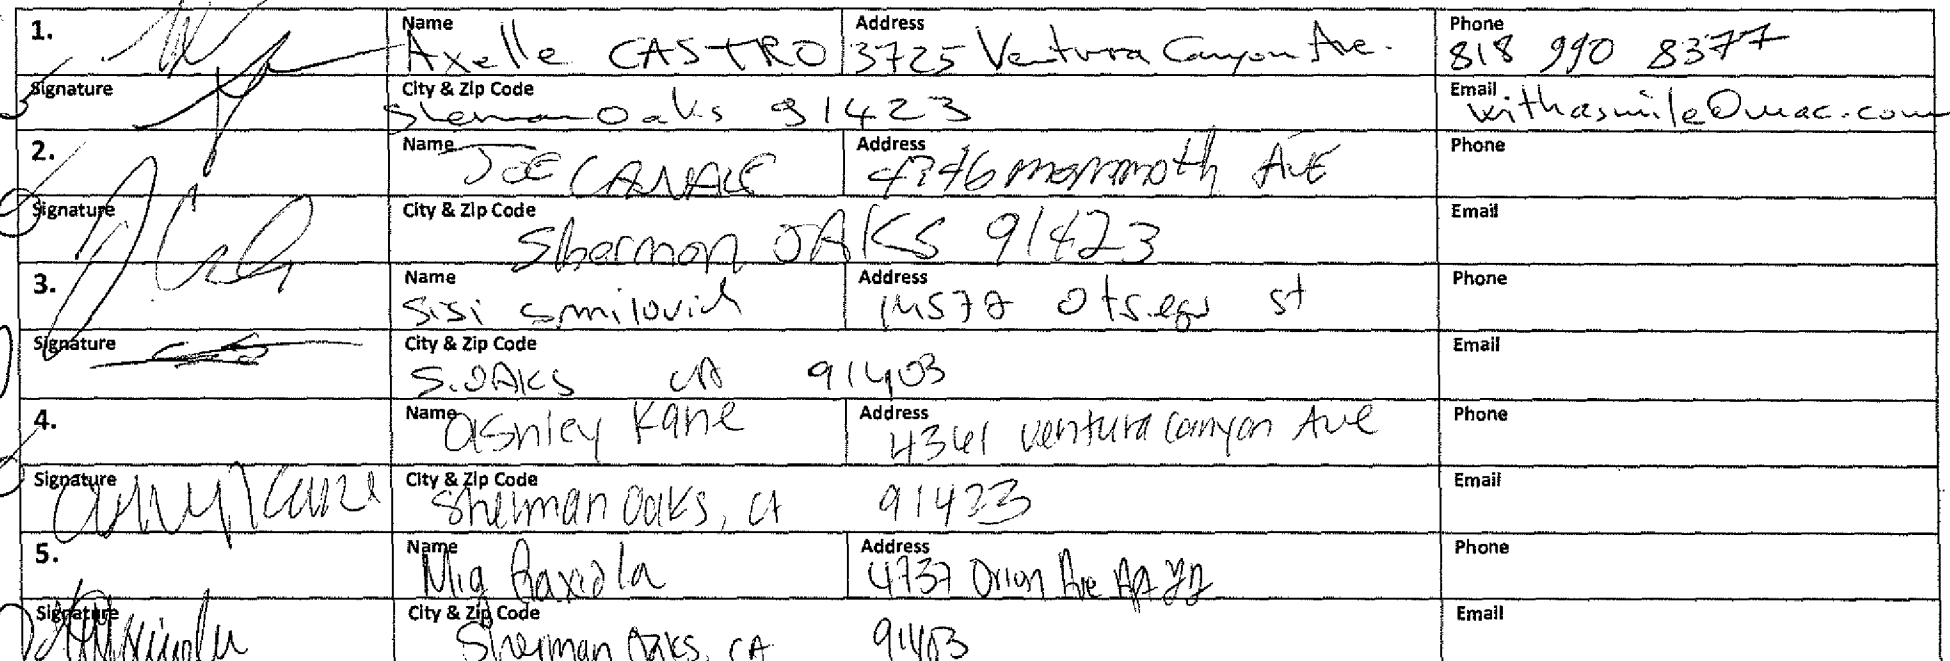 1. Name Axelle CASTRO Address 3725 Ventura Canyon Ave. Phone 818 990 8377
Signature City & Zip Code Sherman Oaks 91423 Email withasmile@mac.com
2. Name JOE CANALE Address mammoth AVE Phone
Signature City & Zip Code Sherman OAKS 91423 Email
3. Name Sisi Smilovich Address Otsego st Phone
Signature City & Zip Code S.OAKS CA 91403 Email
4. Name ashley Kane Address 4361 ventura canyon Ave Phone
Signature City & Zip Code Sherman Oaks, CA 91423 Email
5. Name Address 4737 Orion Ave Apt Phone
Signature City & Zip Code Sherman Oaks, CA 91403 Email